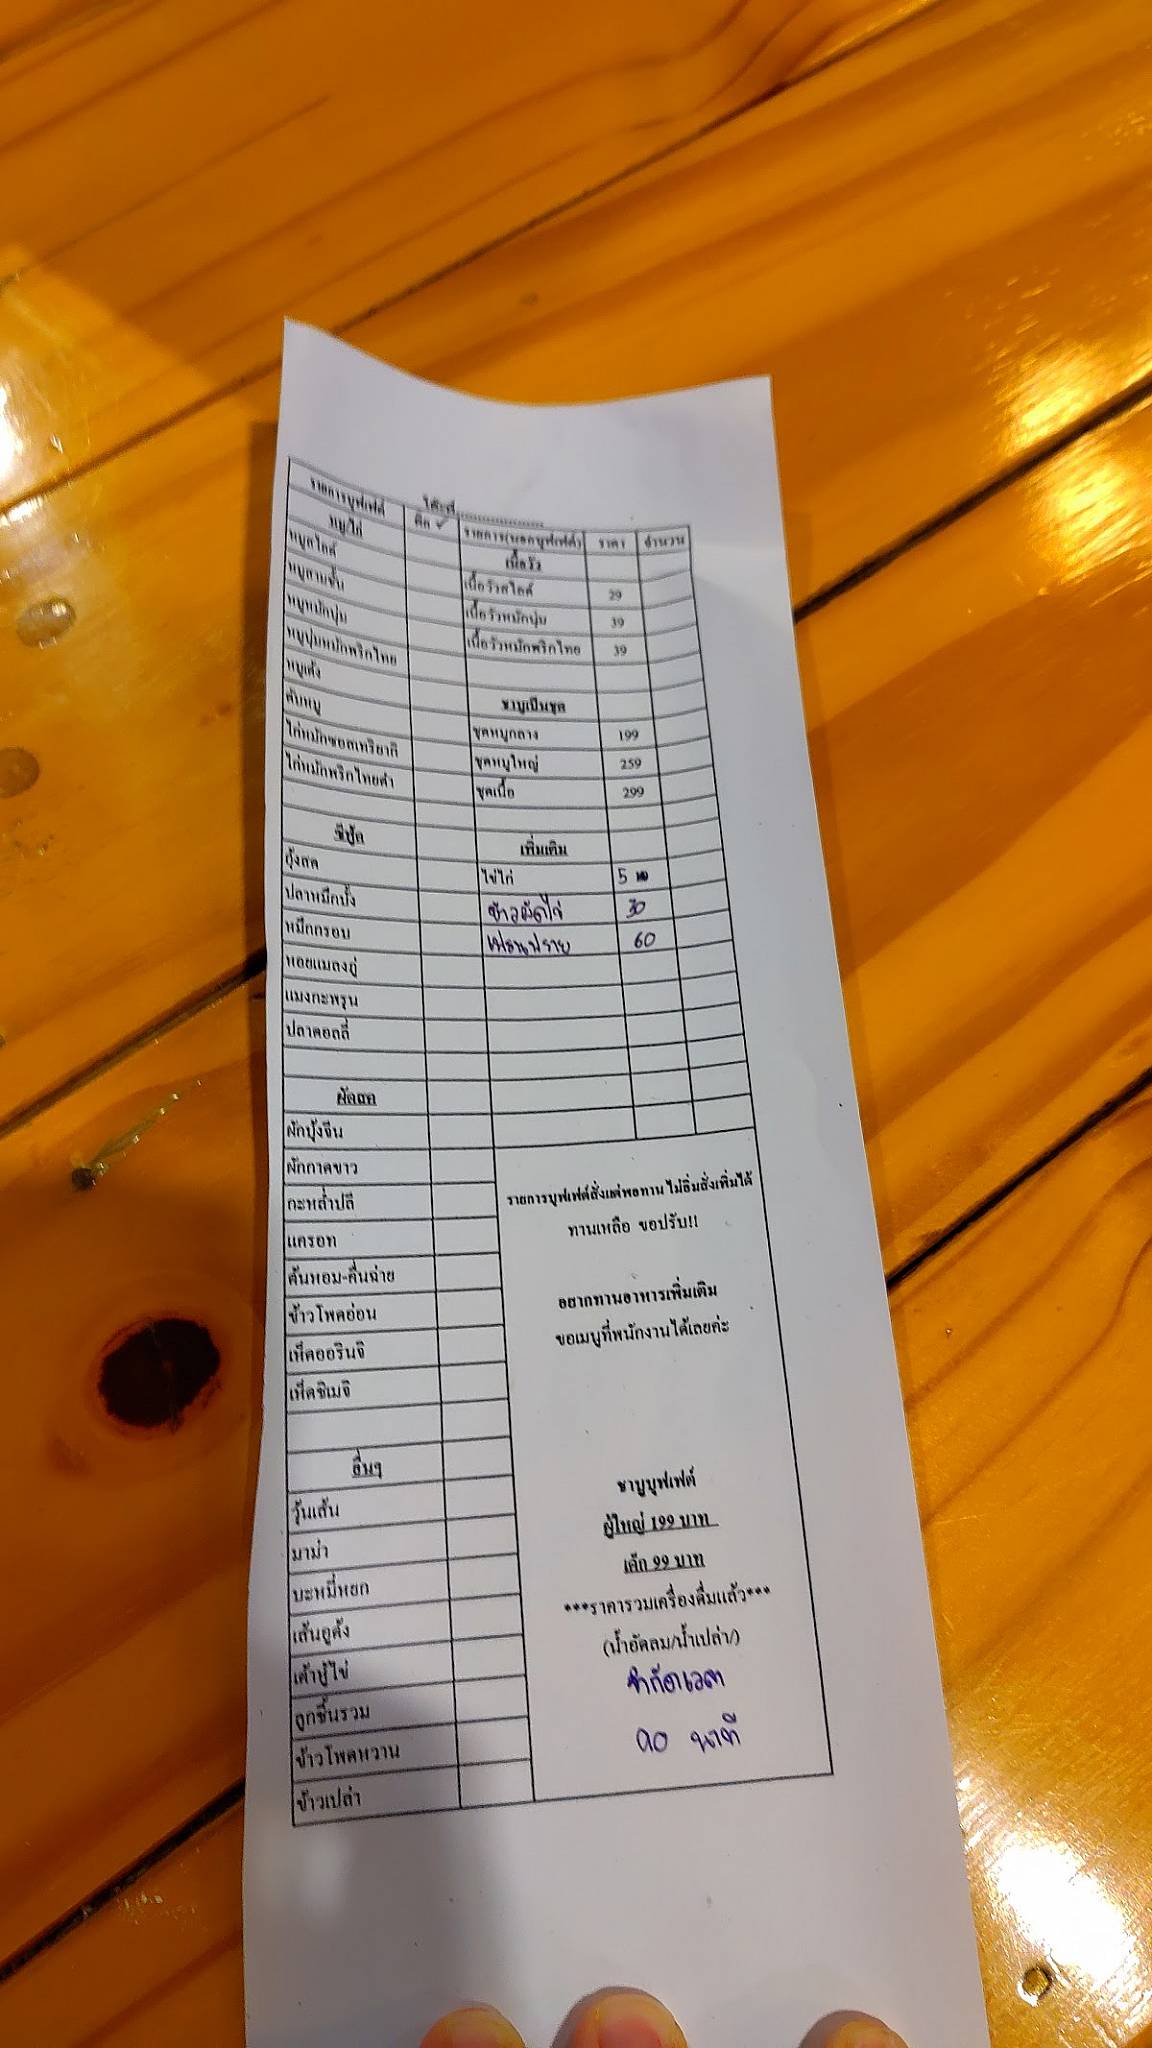 โต๊ะที่......................
รายการบุฟเฟต์ ติ๊ก ✓ รายการ(นอกบุฟเฟ่ต์) ราคา จำนวน
หมู/ไก่
หมูสไลด์
หมูสามชั้น
หมูหมักนุ่ม
หมูนุ่มหมักพริกไทย
หมูเด้ง
ตับหมู
ไก่หมักซอสเทริยากิ
ไก่หมักพริกไทยดำ
ซีฟู้ด
กุ้งสด
ปลาหมึกบั้ง
หมึกกรอบ
หอยแมลงภู่
แมงกะพรุน
ปลาดอลลี่
ผักสด
ผักบุ้งจีน
ผักกาดขาว
กะหล่ำปลี
แครอท
ต้นหอม-คื่นฉ่าย
ข้าวโพดอ่อน
เห็ดออรินจิ
เห็ดชิเมจิ
อื่นๆ
วุ้นเส้น
มาม่า
บะหมี่หยก
เส้นอูด้ง
เต้าหู้ไข่
ลูกชิ้นรวม
ข้าวโพดหวาน
ข้าวเปล่า
เนื้อวัว
เนื้อวัวสไลด์ 29
เนื้อวัวหมักนุ่ม 39
เนื้อวัวหมักพริกไทย 39
ชาบูเป็นชุด
ชุดหมูกลาง 199
ชุดหมูใหญ่ 259
ชุดเนื้อ 299
เพิ่มเติม
ไข่ไก่ 5
ข้าวผัดไข่ 30
เฟรนฟราย 60
รายการบุฟเฟ่ต์สั่งแต่พอทาน ไม่อิ่มสั่งเพิ่มได้
ทานเหลือ ขอปรับ!!
อยากทานอาหารเพิ่มเติม
ขอเมนูที่พนักงานได้เลยค่ะ
ชาบูบุฟเฟต์
ผู้ใหญ่ 199 บาท
เด็ก 99 บาท
***ราคารวมเครื่องดื่มแล้ว***
(น้ำอัดลม/น้ำเปล่า/)
จำกัดเวลา
90 นาที